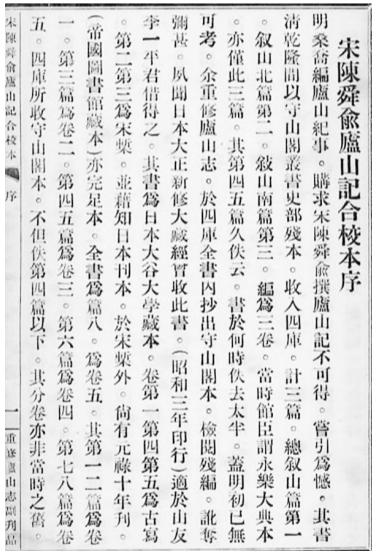 宋陳舜兪廬山記合校本序
明桑喬編廬山紀事。購求宋陳舜兪撰廬山記不可得。嘗引爲憾。其書
清乾隆間以守山閣叢書史部殘本。收入四庫。計三篇。總叙山篇第一
。叙山北篇第二。敍山南篇第三。編爲三卷。當時館臣謂永樂大典本
。亦僅此三篇。其第四五篇久佚云。書於何時佚去太半。蓋明初已無
可考。余重修廬山志。於四庫全書內抄出守山閣本。檢閱殘編。訛奪
彌甚。夙聞日本大正新修大藏經曾收此書。(昭和三年印行)適於山友
李一平君借得之。其書爲日本大谷大學藏本。卷第一第四第五爲古寫
。第二第三爲宋槧。並藉知日本刊本。於宋槧外。尙有元祿十年刋。
(帝國圖書館藏本)亦完足本。全書爲篇八。爲卷五。其第一二篇爲卷
一。第三篇爲卷二。第四五篇爲卷三。第六篇爲卷四。第七八篇爲卷
五。四庫所收守山閣本。不但佚第四篇以下。其分卷亦非當時之舊。
宋陳舜兪廬山記合校本 序 一 重修廬山志副刋品